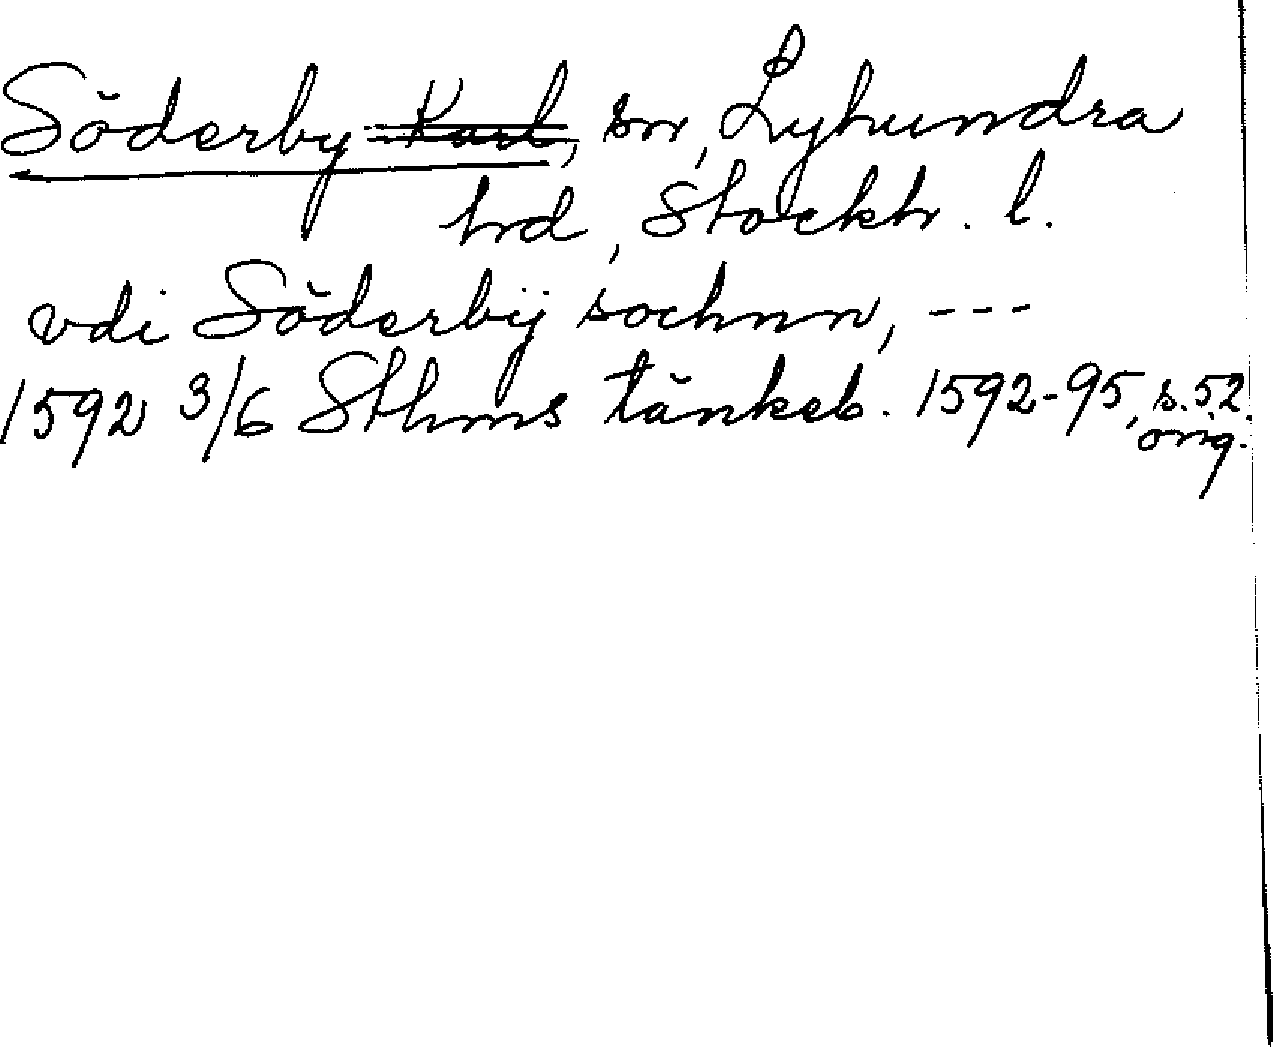 Söderby Karl, sn, Lyhundra
hrd, Stockh. l.
vdi Söderbÿ sochnn, ---
1592 3/6 Sthms tänkeb. 1592-95, s. 52.
orig.